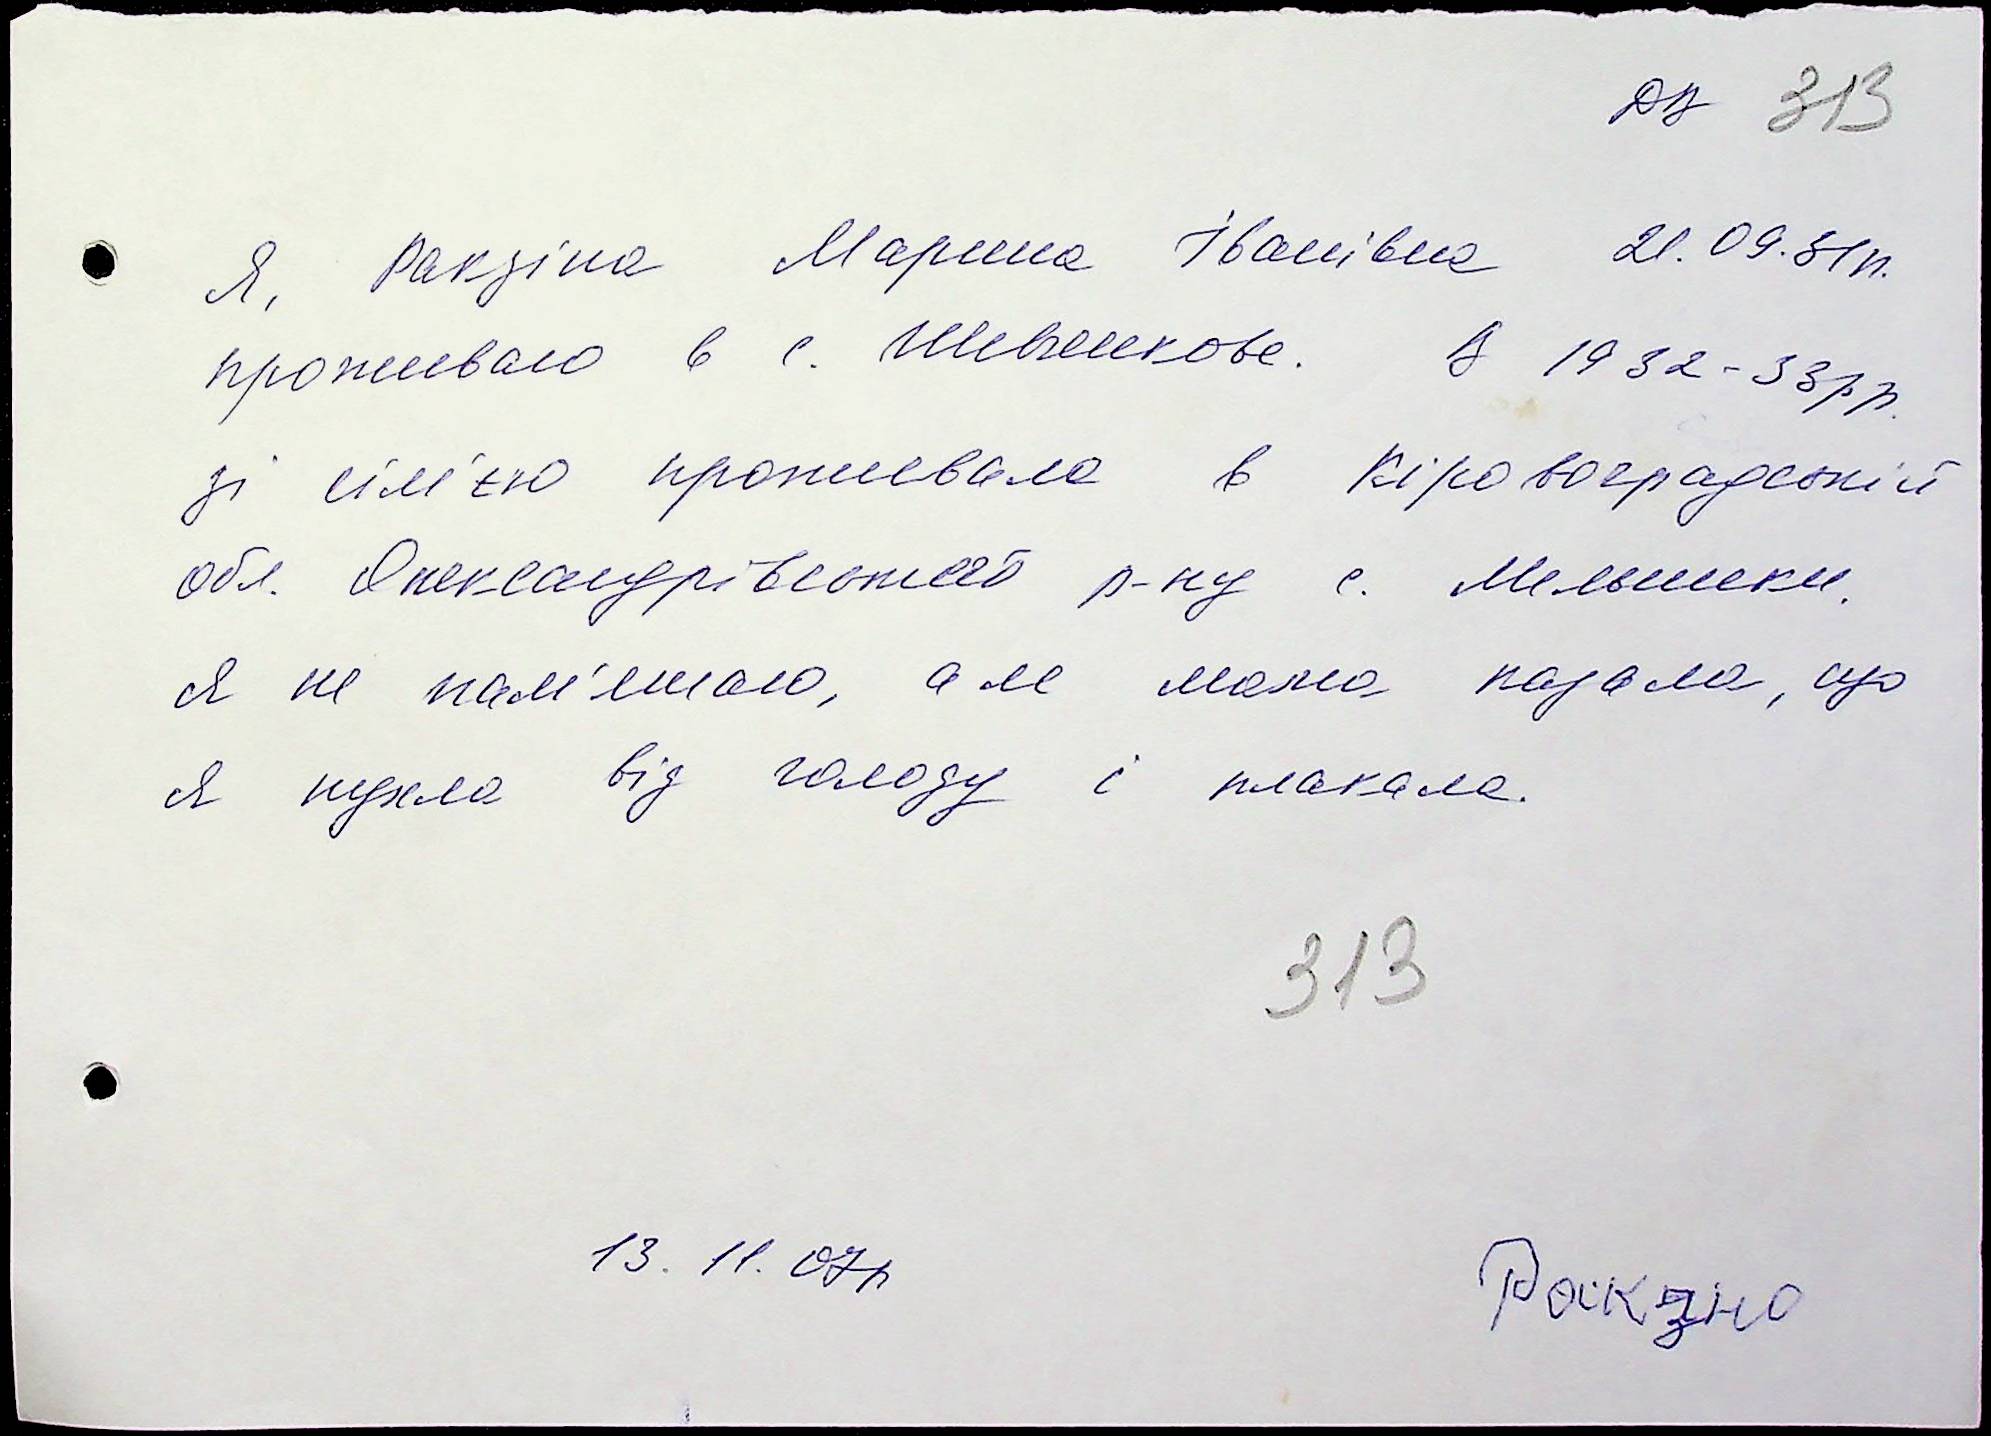 313
Я, Ракзіна Марина Іванівна 21.09.31р.
проживаю в с. Шевченкове. В 1932-33рр.
зі сім'єю проживала в Кіровоградській
обл. Олександрівського р-ну с. Мельники.
Я не пам'ятаю, але мама казала, що
я пухла від голоду і плакала.
313
13. 11. 07р